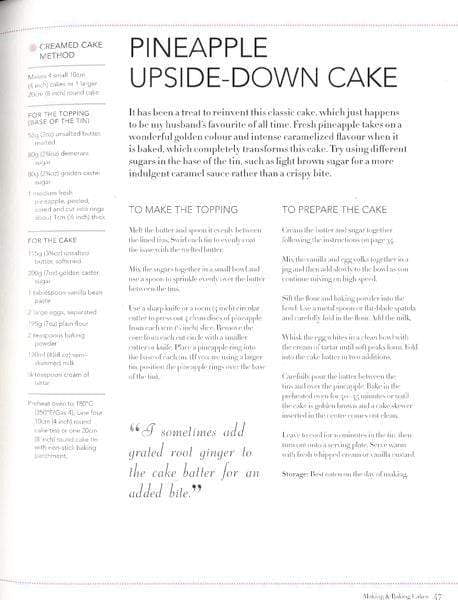 CREAMED CAKE
METHOD
Makes 4 small 10cm
(4 inch) cakes or 1 larger
20cm (8 inch) round cake
FOR THE TOPPING
(BASE OF THE TIN)
unsalted butter,
melted
80g demerara
sugar
80g golden caster
sugar
1 medium fresh
pineapple, peeled,
cored and cut into rings
about 1cm (½ inch) thick
FOR THE CAKE
unsalted
butter, softened
200g (7oz) golden caster
sugar
1 tablespoon vanilla bean
paste
2 large eggs, separated
195g (7oz) plain flour
2 teaspoons baking
powder
120ml semi-
skimmed milk
¼ teaspoon cream of
tartar
Preheat oven to 180°C
(350°F/Gas 4). Line four
10cm (4 inch) round
cake tins or one 20cm
(8 inch) round cake tin
with non-stick baking
parchment.
PINEAPPLE
UPSIDE-DOWN CAKE
It has been a treat to reinvent this classic cake, which just happens
to be my husband's favourite of all time. Fresh pineapple takes on a
wonderful golden colour and intense caramelized flavour when it
is baked, which completely transforms this cake. Try using different
sugars in the base of the tin, such as light brown sugar for a more
indulgent caramel sauce rather than a crispy bite.
TO MAKE THE TOPPING
Melt the butter and spoon it evenly between
the lined tins. Swirl each tin to evenly coat
the base with the melted butter.
Mix the sugars together in a small bowl and
use a spoon to sprinkle evenly over the butter
between the tins.
Use a sharp knife or a 10cm (4 inch) circular
cutter to press out 4 clean discs of pineapple
from each 1cm (½ inch) slice. Remove the
core from each cut circle with a smaller
cutter or knife. Place a pineapple ring into
the base of each tin. (If you are using a larger
tin, position the pineapple rings over the base
of the tin).
“I sometimes add
grated root ginger to
the cake batter for an
added bite.”
TO PREPARE THE CAKE
Cream the butter and sugar together
following the instructions on page
Mix the vanilla and egg yolks together in a
jug and then add slowly to the bowl as you
continue mixing on high speed.
Sift the flour and baking powder into the
bowl. Use a metal spoon or flat-blade spatula
and carefully fold in the flour. Add the milk.
Whisk the egg whites in a clean bowl with
the cream of tartar until soft peaks form. Fold
into the cake batter in two additions.
Carefully pour the batter between the
tins and over the pineapple. Bake in the
preheated oven for minutes or until
the cake is golden brown and a cake skewer
inserted in the centre comes out clean.
Leave to cool for 10 minutes in the tin, then
turn out onto a serving plate. Serve warm
with fresh whipped cream or vanilla custard.
Storage: Best eaten on the day of making.
Making & Baking Cakes 47